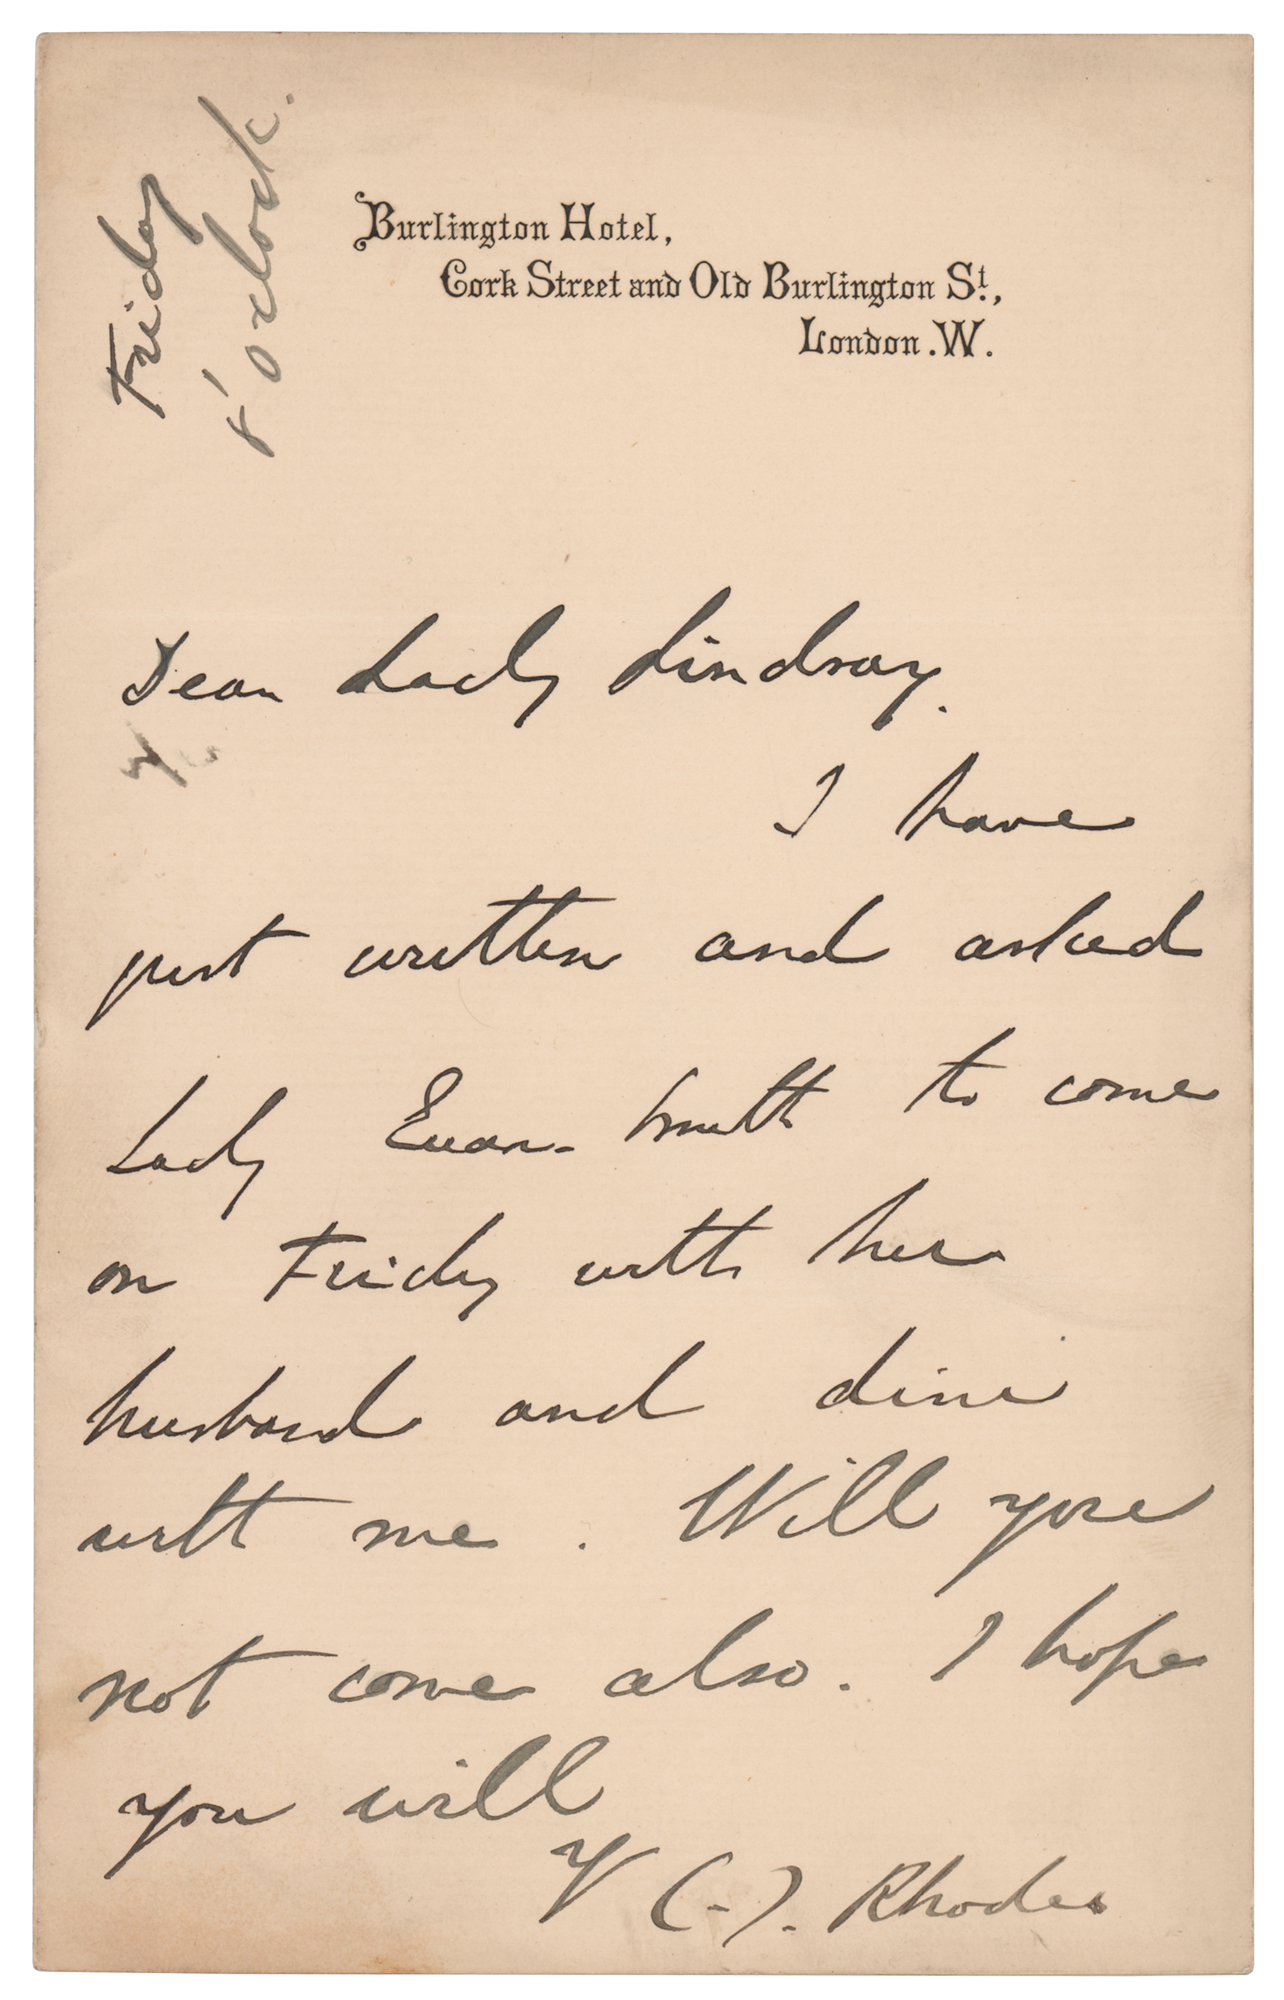 Friday
8 'oclock.
Burlington Hotel,
Cork Street and Old Burlington St.,
London. W.
Dear Lady Lindsay.
I have
just written and asked
Lady Euan-Smith to come
on Friday with her
husband and dine
with me. Will you
not come also. I hope
you will
Y C.J. Rhodes